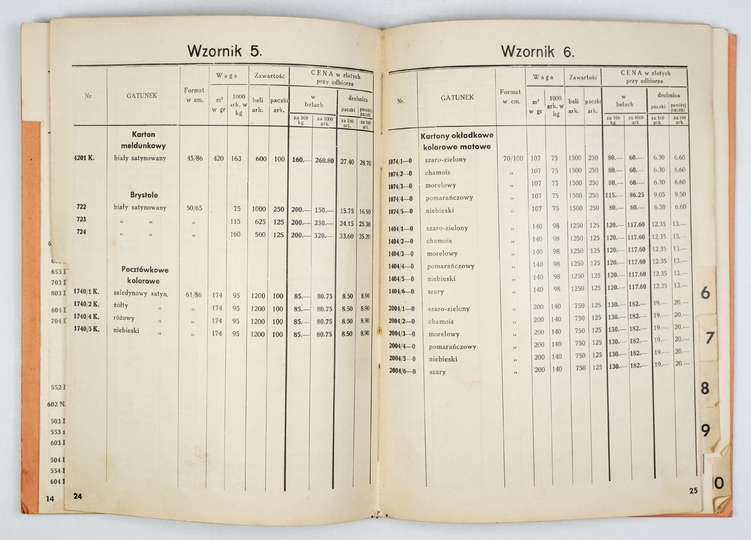 Wzornik 5.
Waga Zawartość CENA w złotych
przy odbiorze
Nr. GATUNEK Format w cm. m² w gr 1000 ark. w kg beli ark. paczki ark. w belach drobnica
paczki poniżej paczki
za 100 kg za 1000 ark. za 100 ark. za 100 ark.
Karton
meldunkowy
4201 K. biały satynowany 45/86 420 163 600 100 160.— 260.80 27.40 28.70
Brystole
722 biały satynowany 50/65 75 1000 250 200.— 150.— 15.75 16.50
723 „ „ „ 115 625 125 200.— 230.— 24.15 25.30
724 „ „ „ 160 500 125 200.— 320.— 33.60 35.20
Pocztówkowe
kolorowe
1740/1 K. seledynowy satyn. 61/86 174 95 1200 100 85.— 80.75 8.50 8.90
1740/2 K. żółty „ „ 174 95 1200 100 85.— 80.75 8.50 8.90
1740/4 K. różowy „ „ 174 95 1200 100 85.— 80.75 8.50 8.90
1740/5 K. niebieski „ „ 174 95 1200 100 85.— 80.75 8.50 8.90
24
14
Wzornik 6.
Waga Zawartość CENA w złotych
przy odbiorze
Nr. GATUNEK Format w cm. m² w gr 1000 ark. w kg beli ark. paczki ark. w belach drobnica
paczki poniżej paczki
za 100 kg za 1000 ark. za 100 ark. za 100 ark.
Kartony okładkowe
kolorowe matowe
1074/1—0 szaro-zielony 70/100 107 75 1500 250 80.— 60.— 6.30 6.60
1074/2—0 chamois „ 107 75 1500 250 80.— 60.— 6.30 6.60
1074/3—0 morelowy „ 107 75 1500 250 80.— 60.— 6.30 6.60
1074/4—0 pomarańczowy „ 107 75 1500 250 115.— 86.25 9.05 9.50
1074/5—0 niebieski „ 107 75 1500 250 80.— 60.— 6.30 6.60
1404/1—0 szaro-zielony „ 140 98 1250 125 120.— 117.60 12.35 13.—
1404/2—0 chamois „ 140 98 1250 125 120.— 117.60 12.35 13.—
1404/3—0 morelowy „ 140 98 1250 125 120.— 117.60 12.35 13.—
1404/4—0 pomarańczowy „ 140 98 1250 125 120.— 117.60 12.35 13.—
1404/5—0 niebieski „ 140 98 1250 125 120.— 117.60 12.35 13.—
1404/6—0 szary „ 140 98 1250 125 120.— 117.60 12.35 13.—
2004/1—0 szaro-zielony „ 200 140 750 125 130.— 182.— 19.— 20.—
2004/2—0 chamois „ 200 140 750 125 130.— 182.— 19.— 20.—
2004/3—0 morelowy „ 200 140 750 125 130.— 182.— 19.— 20.—
2004/4—0 pomarańczowy „ 200 140 750 125 130.— 182.— 19.— 20.—
2004/5—0 niebieski „ 200 140 750 125 130.— 182.— 19.— 20.—
2004/6—0 szary „ 200 140 750 125 130.— 182.— 19.— 20.—
25
6
7
8
9